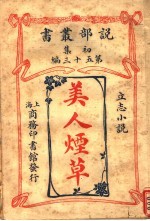 說部叢書
初集
第五十三編
立志小說
美人煙草
上海
商務印書館發行